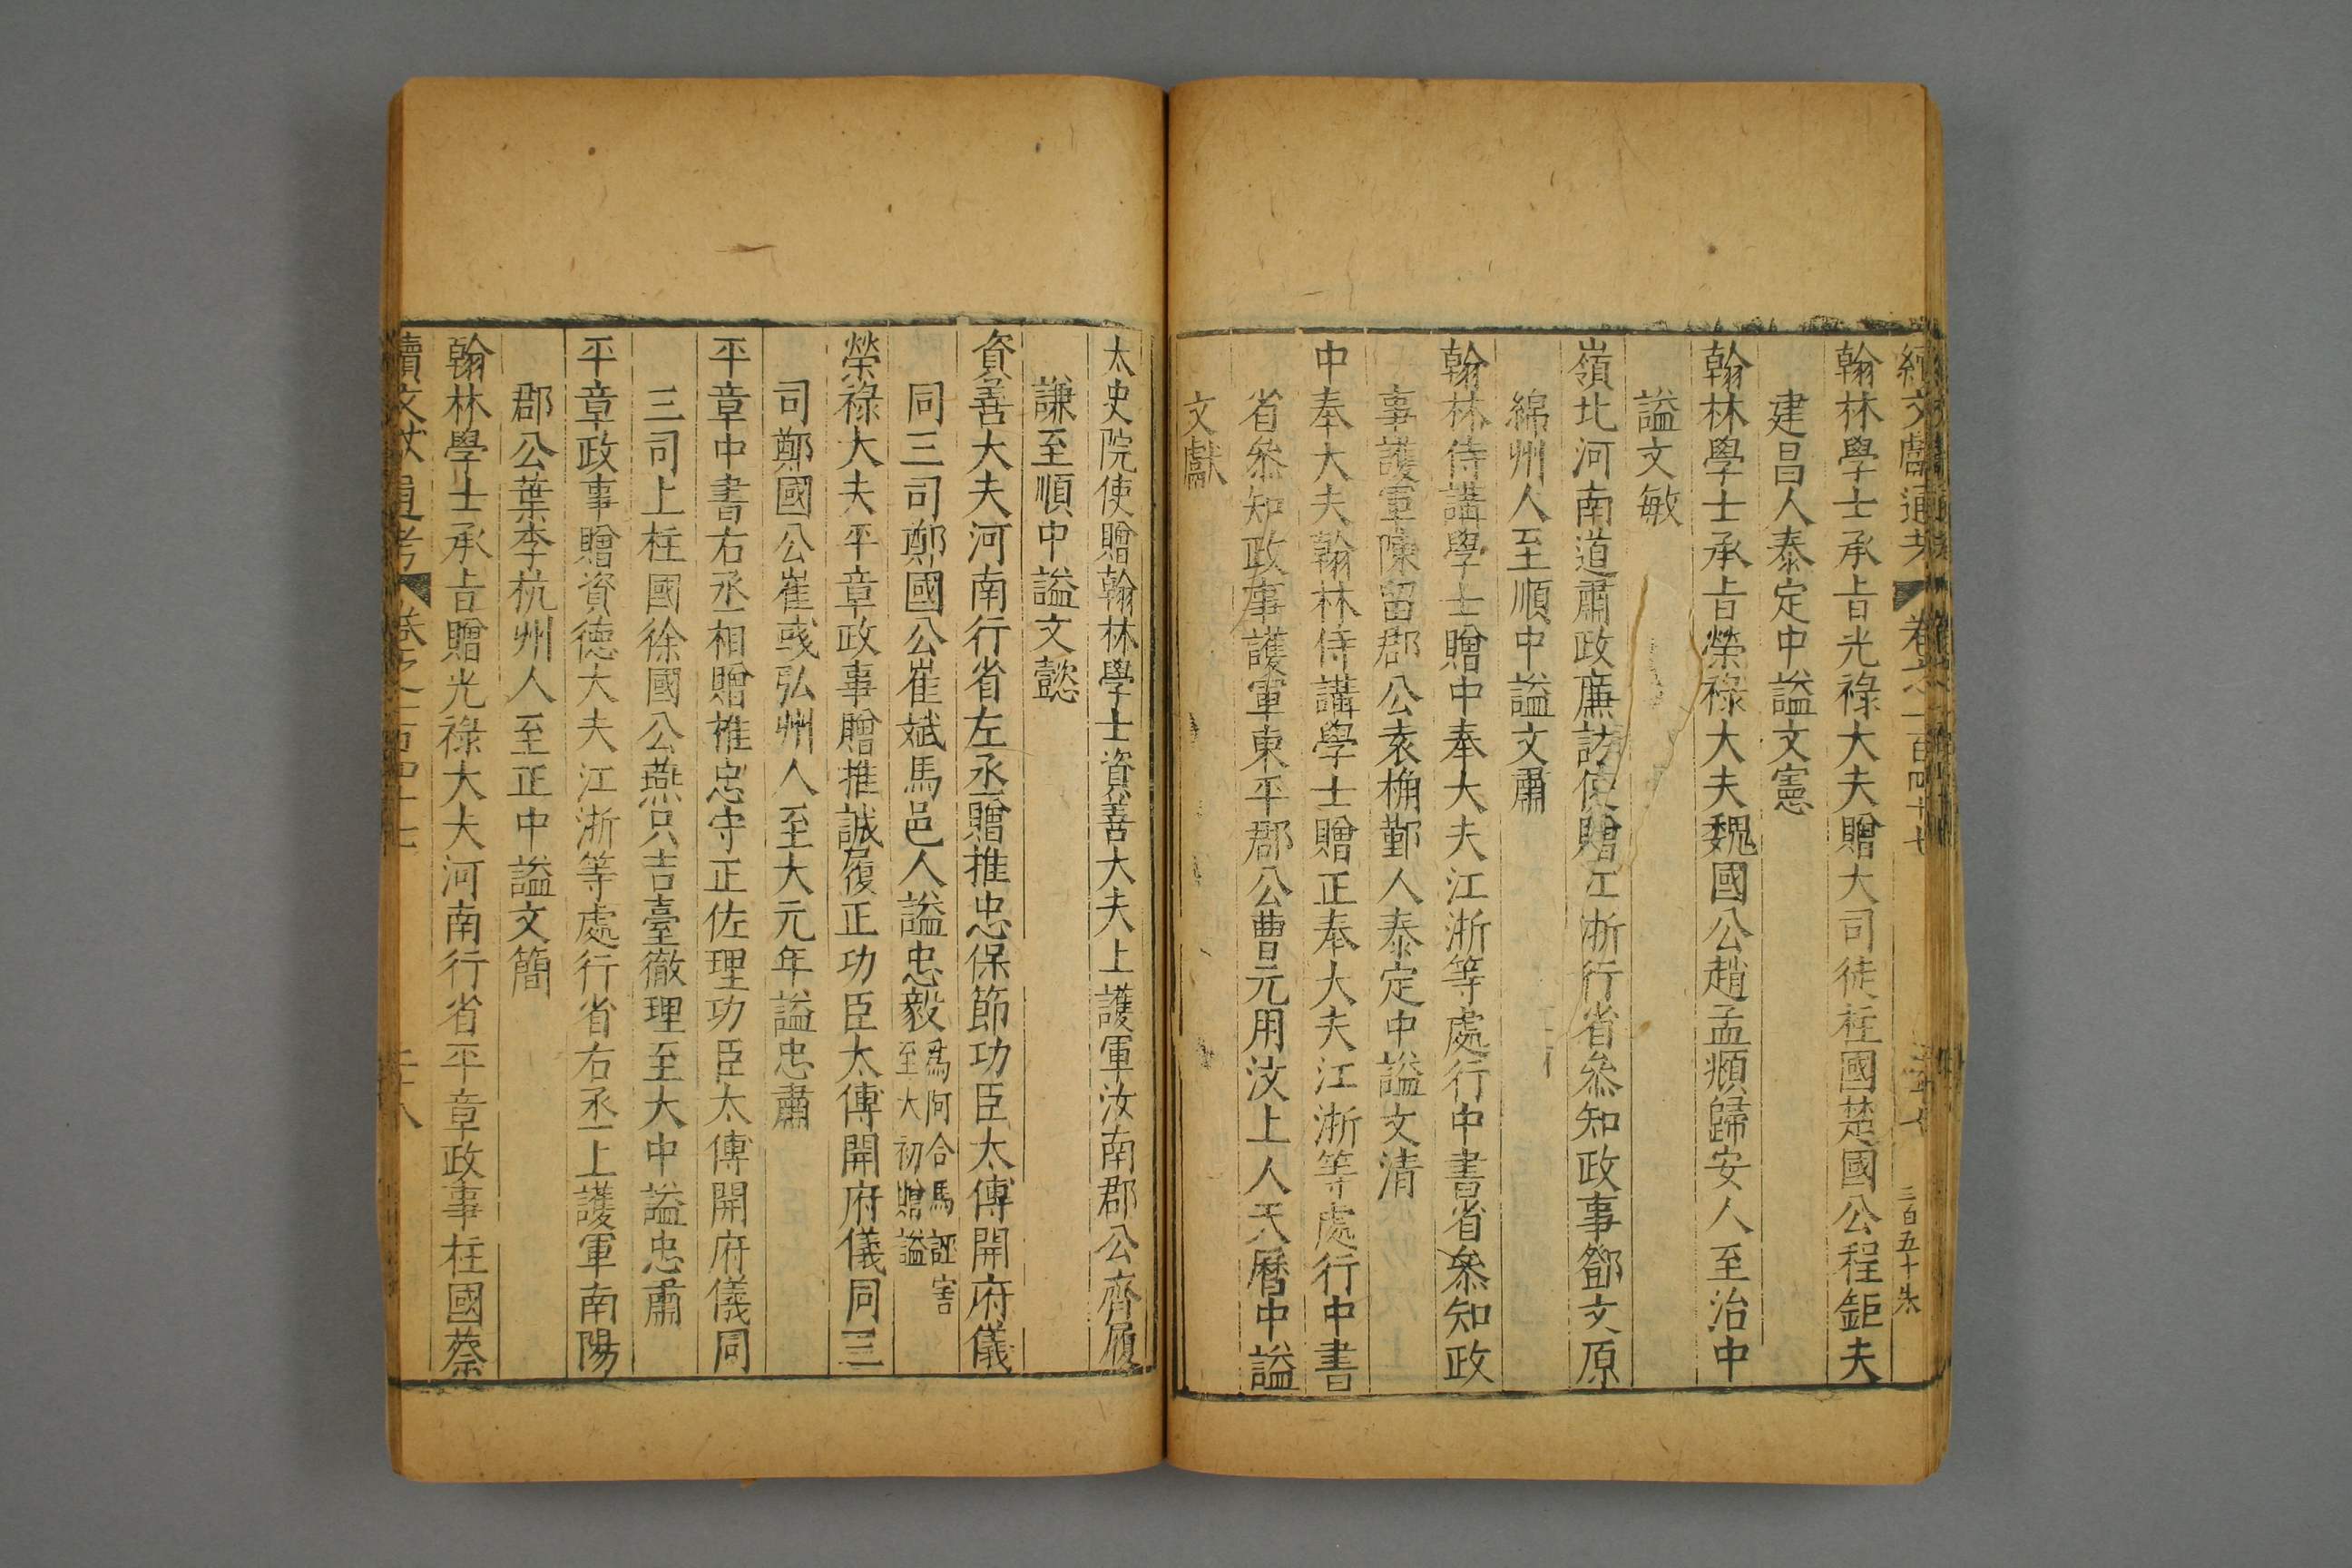 續文獻通考 卷之一百四十七 三百五十
翰林學士承旨光祿大夫贈大司徒柱國楚國公程鉅夫
建昌人泰定中謚文憲
翰林學士承旨榮祿大夫魏國公趙孟頫歸安人至治中
謚文敏
嶺北河南道肅政廉訪使贈江浙行省叅知政事鄧文原
綿州人至順中謚文肅
翰林侍講學士贈中奉大夫江浙等處行中書省叅知政
事護軍陳留郡公袁桷鄞人泰定中謚文清
中奉大夫翰林侍講學士贈正奉大夫江浙等處行中書
省叅知政事護軍東平郡公曹元用汶上人天曆中謚
文獻
太史院使贈翰林學士資善大夫上護軍汝南郡公齊履
謙至順中謚文懿
資善大夫河南行省左丞贈推忠保節功臣太傅開府儀
同三司鄭國公崔斌馬邑人謚忠毅爲阿合馬誣害至大初贈謚
榮祿大夫平章政事贈推誠履正功臣太傅開府儀同三
司鄭國公崔彧弘州人至大元年謚忠肅
平章中書右丞相贈推忠守正佐理功臣太傅開府儀同
三司上柱國徐國公燕只吉臺徹理至大中謚忠肅
平章政事贈資德大夫江浙等處行省右丞上護軍南陽
郡公葉李杭州人至正中謚文簡
翰林學士承旨贈光祿大夫河南行省平章政事柱國蔡
續文獻通考 卷之一百四十七 二十八